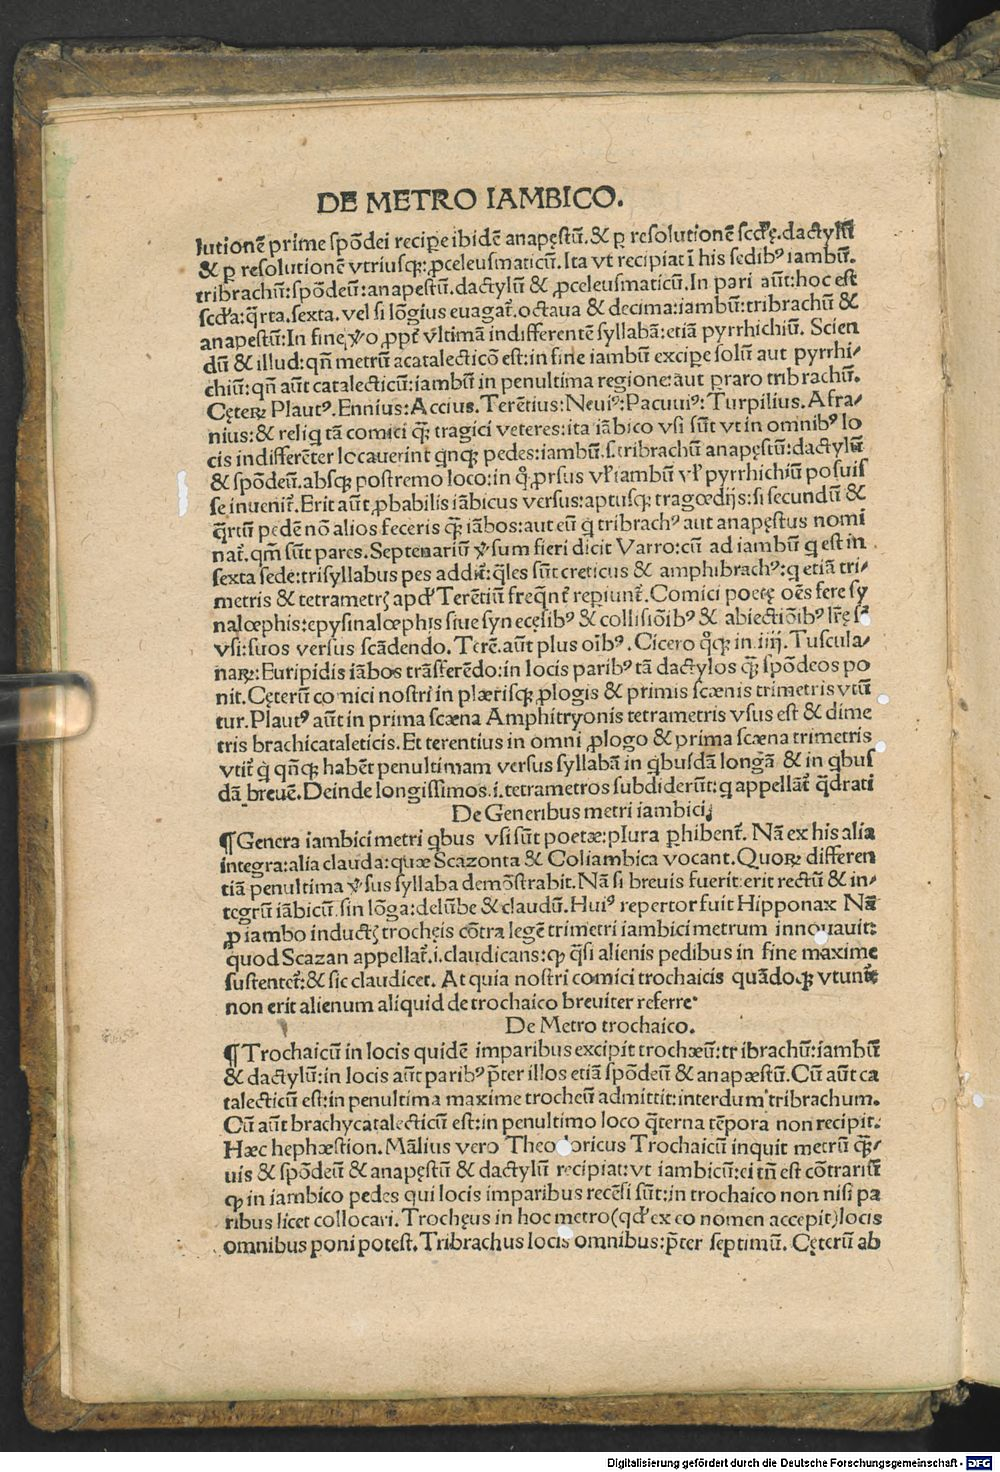 DE METRO IAMBICO.
lutionē prime spōdei recipe ibidē anapęstū. & ꝑ resolutionē scd'ę. dactylū
& ꝑ resolutionē vtriusqꝫ: ꝓceleusmaticū. Ita vt recipiat ī his sedibꝰ iambū.
tribrachū: spōdeū: anapestū. dactylū & ꝓceleusmaticū. In pari aūt: hoc est
scd'a: q̄rta. sexta. vel si lōgius euagat᷑. octaua & decima: iambū: tribrachū &
anapestū: In fine v̓o ꝓpt᷑ vltimā indifferentē syllabā: etiā pyrrhichiū. Scien
dū & illud: qn̄ metrū acatalecticō est: in fine iambū excipe solū aut pyrrhi/
chiū: qn̄ aūt catalecticū: iambū in penultima regione: aut ꝑraro tribrachū.
Cęterꝝ Plautꝰ. Ennius: Accius. Terētius: Neuiꝰ: Pacuuiꝰ: Turpilius. Afra/
nius: & reliq tā comici q̄ꝫ tragici veteres: ita iābico vsi sūt vt in omnibꝰ lo
cis indifferēter locauerint qnqꝫ pedes: iambū. s. tribrachū anapęstū: dactylū
& spōdeū. absqꝫ postremo loco: in q̊ ꝓrsus vl' iambū vl' pyrrhichiū posuis
se inuenit᷑. Erit aūt ꝓbabilis iābicus versus: aptusqꝫ tragœdijs: si secundū &
q̄rtū pedē nō alios feceris q̄ꝫ iābos: aut eū q tribrachꝰ aut anapęstus nomi
nat᷑. qm̄ sūt pares. Septenariū v̓sum fieri dicit Varro: cū ad iambū q est in
sexta sede: trisyllabus pes addit᷑: q̄les sūt creticus & amphibrachꝰ: q etiā tri/
metris & tetrametrꝭ apd' Terētiū freq̄nt᷑ reꝑiunt᷑. Comici poetę oēs fere sy
nalœphis: epysinalœphis siue synecęsibꝰ & collisiōibꝰ & abiectiōibꝰ lr̄ę s̄
vsi: suos versus scādendo. Terē. aūt plus oībꝰ. Cicero q̊qꝫ in. iiij. Tuscula/
narꝝ: Euripidis iābos trāsferēdo: in locis paribꝰ tā dactylos q̄ꝫ spōdeos po
nit. Cęterū comici nostri in plærisqꝫ ꝓlogis & primis scænis trimetris vtū
tur. Plautꝰ aūt in prima scæna Amphitryonis tetrametris vsus est & dime
tris brachicataleticis. Et terentius in omni ꝓlogo & prima scæna trimetris
vtit᷑ q qn̄qꝫ habēt penultimam versus syllabā in qbusdā longā & in qbus
dā breuē. Deinde longissimos. i. tetrametros subdiderūt: q appellāt᷑ q̄drati
De Generibus metri iambici
¶ Genera iambici metri qbus vsi sūt poetæ: plura ꝑhibent᷑. Nā ex his alia
integra: alia clauda: quæ Scazonta & Coliambica vocant. Quorꝝ differen
tiā penultima v̓sus syllaba demōstrabit. Nā si breuis fuerit: erit rectū & in/
tegrū iābicū. sin lōga: delūbe & claudū. Huiꝰ repertor fuit Hipponax Nā
ꝓ iambo inductꝭ trochęis cōtra legē trimetri iambici metrum innouauit:
quod Scazan appellat᷑. i. claudicans: ꝙ q̄si alienis pedibus in fine maxime
sustentet᷑: & sic claudicet. At quia nostri comici trochaicis quādoqꝫ vtunt᷑
non erit alienum aliquid de trochaico breuiter referre·
De Metro trochaico.
¶ Trochaicū in locis quidē imparibus excipit trochæū: tribrachū: iambū
& dactylū: in locis aūt paribꝰ p̄ter illos etiā spōdeū & anapæstū. Cū aūt ca
talecticū est: in penultima maxime trocheū admittit: interdum tribrachum.
Cū aūt brachycatalecticū est: in penultimo loco q̄terna tēpora non recipit:
Hæc hephæstion. Mālius vero Theodoricus Trochaicū inquit metrū q̄ꝫ/
uis & spōdeū & anapęstū & dactylū recipiat: vt iambicū: ei tn̄ est cōtrariū
ꝙ in iambico pedes qui locis imparibus recēsi sūt: in trochaico non nisi pa
ribus licet collocari. Trochęus in hoc metro (qd' ex eo nomen accepit) locis
omnibus poni potest. Tribrachus locis omnibus: p̄ter septimū. Cęterū ab
Digitalisierung gefördert durch die Deutsche Forschungsgemeinschaft - DFG